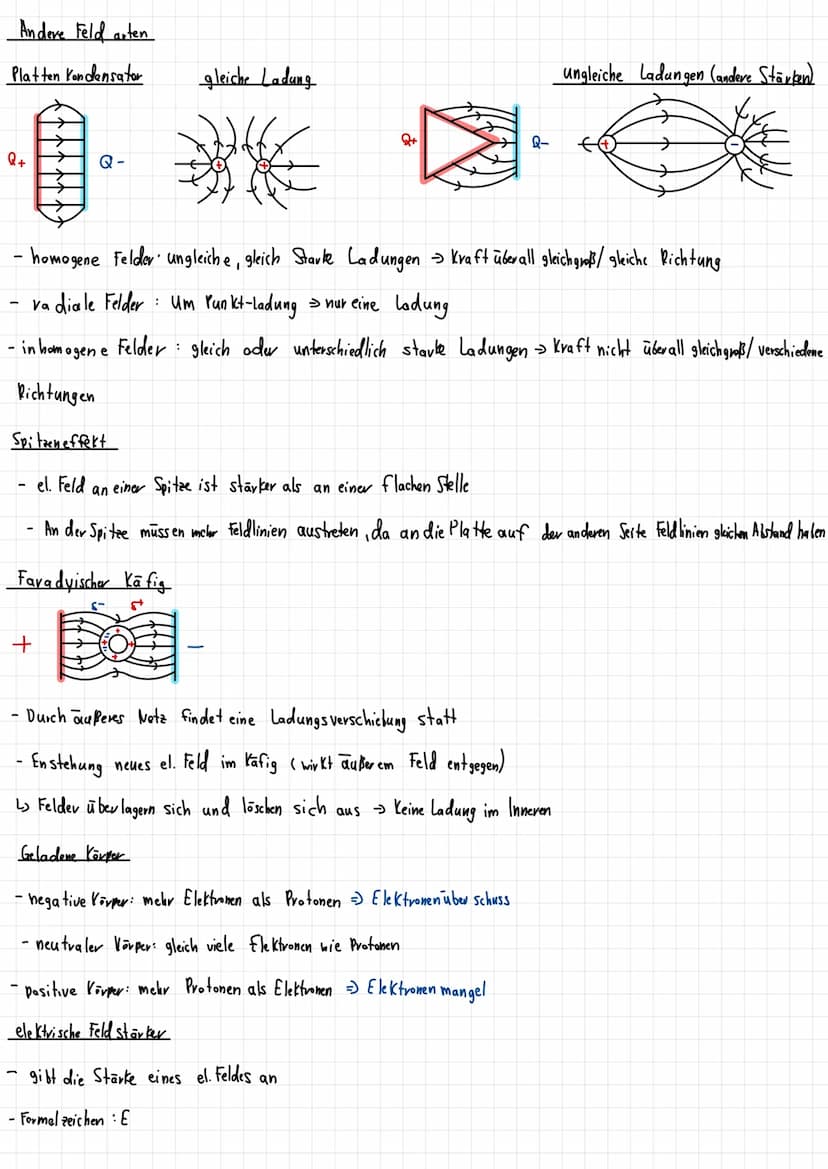 Andere Feld arten
Platten Kondensator
gleiche Ladung
ungleiche Ladungen (andere Stärken)
Q+
Q-
+
+
Q+
Q-
+
-
- homogene Felder: ungleiche, gleich Starke Ladungen → Kraft überall gleichgroß/ gleiche Richtung
- radiale Felder : Um Punkt-ladung → nur eine ladung
- inhomogene Felder : gleich oder unterschiedlich starke Ladungen → Kraft nicht überall gleichgroß/ verschiedene
Richtungen
Spitzeneffekt
- el. Feld an einer Spitze ist stärker als an einer flachen Stelle
- An der Spitze müssen mehr Feldlinien austreten, da an die Platte auf der anderen Seite Feldlinien gleichen Abstand halen
Faradyischer Käfig
δ- δ+
+
-
- Durch äußeres Netz findet eine Ladungsverschiebung statt
- Enstehung neues el. Feld im Käfig (wirkt äußerem Feld entgegen)
↳ Felder überlagern sich und löschen sich aus → Keine Ladung im Inneren
Geladene Körper
- negative Körper: mehr Elektronen als Protonen ⇒ Elektronenüberschuss
- neutraler Körper: gleich viele Elektronen wie Protonen
- positive Körper: mehr Protonen als Elektronen ⇒ Elektronenmangel
elektrische Feldstärker
- gibt die Stärke eines el. Feldes an
- Formelzeichen : E